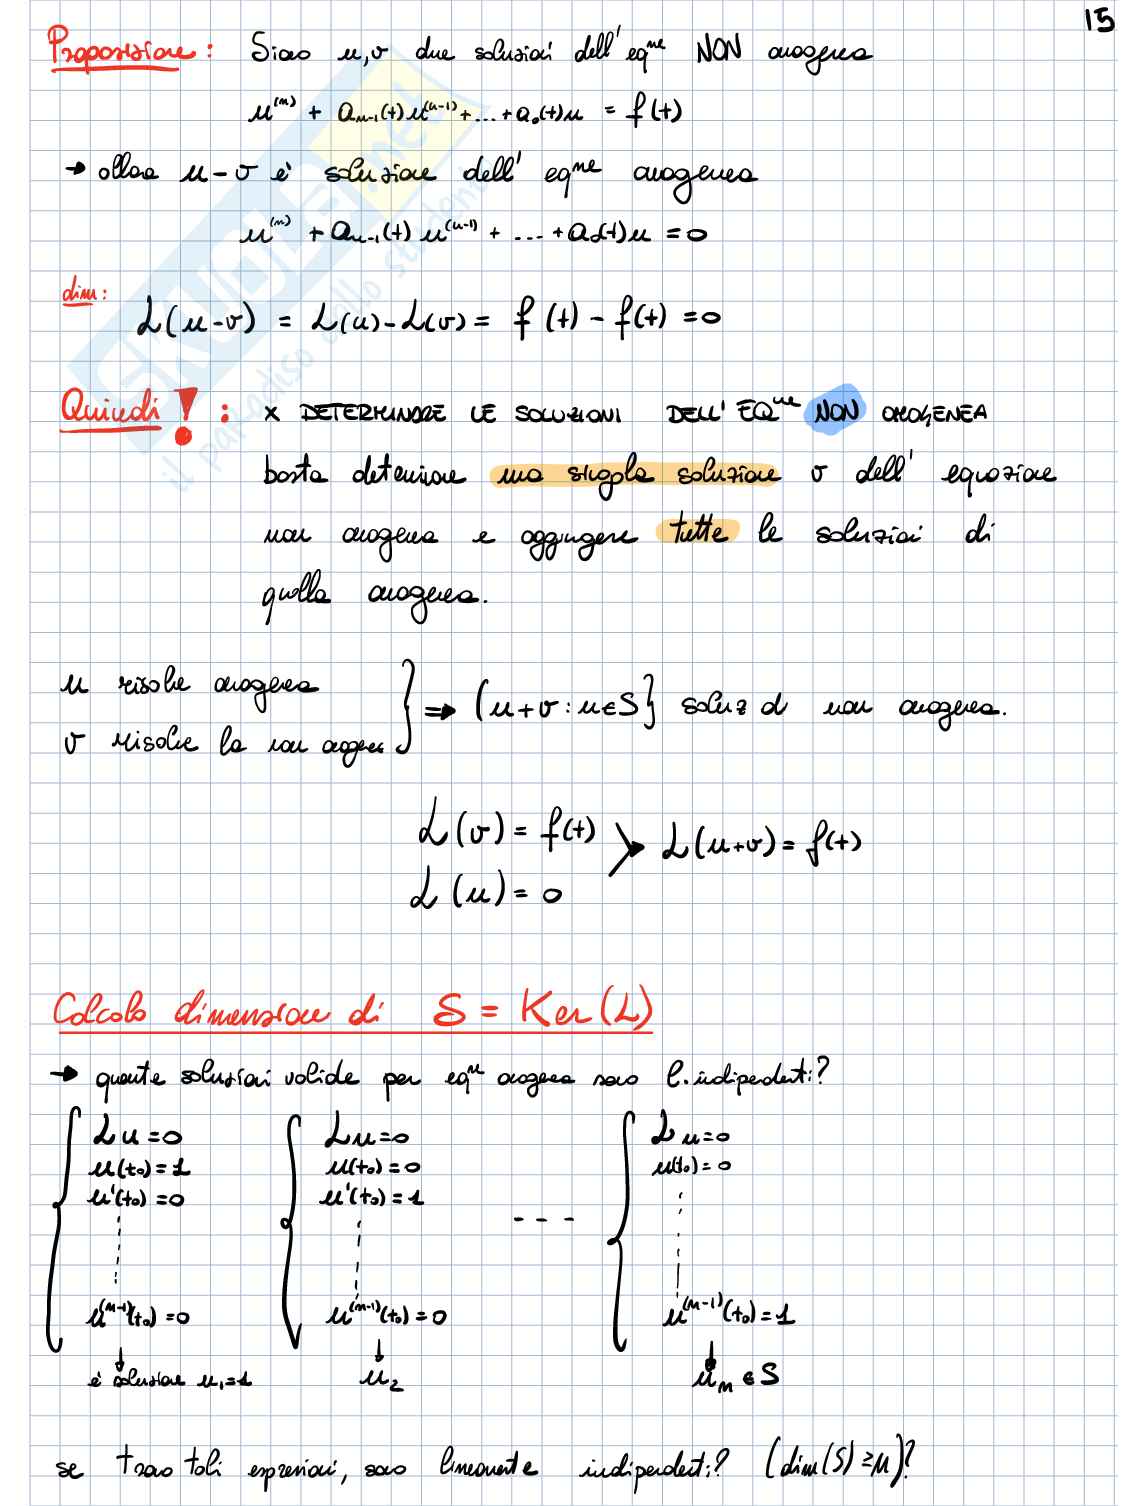 15
Proposizione: Siano u,v due soluzioni dell'eq^ne NON omogenea
u^(n) + a_{n-1}(t)u^(n-1) + ... + a_0(t)u = f(t)
→ allora u-v è soluzione dell' eq^ne omogenea
u^(n) + a_{n-1}(t) u^(n-1) + .... + a_0(t)u = 0
dim:
L(u-v) = L(u) - L(v) = f(t) - f(t) = 0
Quindi! : x DETERMINARE LE SOLUZIONI DELL' EQ^ne NON OMOGENEA
basta determinare una singola soluzione v dell' equazione
non omogenea e aggiungere tutte le soluzioni di
quella omogenea.
u risolve omogenea
v risolve la non omogenea
} ⇒ {u+v : u∈S} soluz di non omogenea.
L(v) = f(t)
L(u) = 0
> L(u+v) = f(t)
Calcolo dimensione di S = Ker(L)
→ quante soluzioni valide per eq^ne omogenea sono l. indipendenti?
Lu=0 Lu=0 Lu=0
u(t_0)=1 u(t_0)=0 u(t_0)=0
u'(t_0)=0 u'(t_0)=1
---
u^(n-1)(t_0)=0 u^(n-1)(t_0)=0 u^(n-1)(t_0)=1
↓ ↓ ↓
è soluzione u_1=1 u_2 u_n ∈ S
se trovo tali espressioni, sono linearmente indipendenti? (dim(S) ≥ n)?
SKUOLA.net
il paradiso dello studente